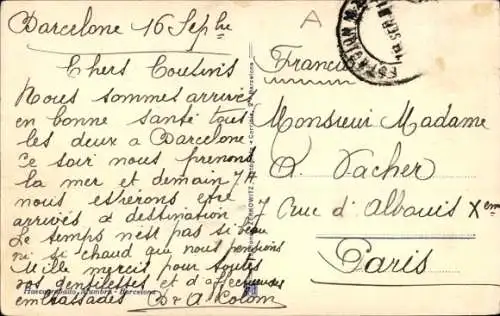 Barcelone 16 Sepbre
Chers Cousins
Nous sommes arrivés
en bonne santé tous
les deux a Barcelone
Ce soir nous prenons
la mer et demain 17
nous espérons être
arrivés a destination
Le temps n'est pas si beau
ni si chaud que nous pensions
Mille mercis pour toutes
vos gentilesses et d'affectueuses
embrassades D & A. Colom
Huecograbado Mumbrú - Barcelona
A
France
Monsieur Madame
A. Vacher
7 rue d'Albouis Xem
Paris